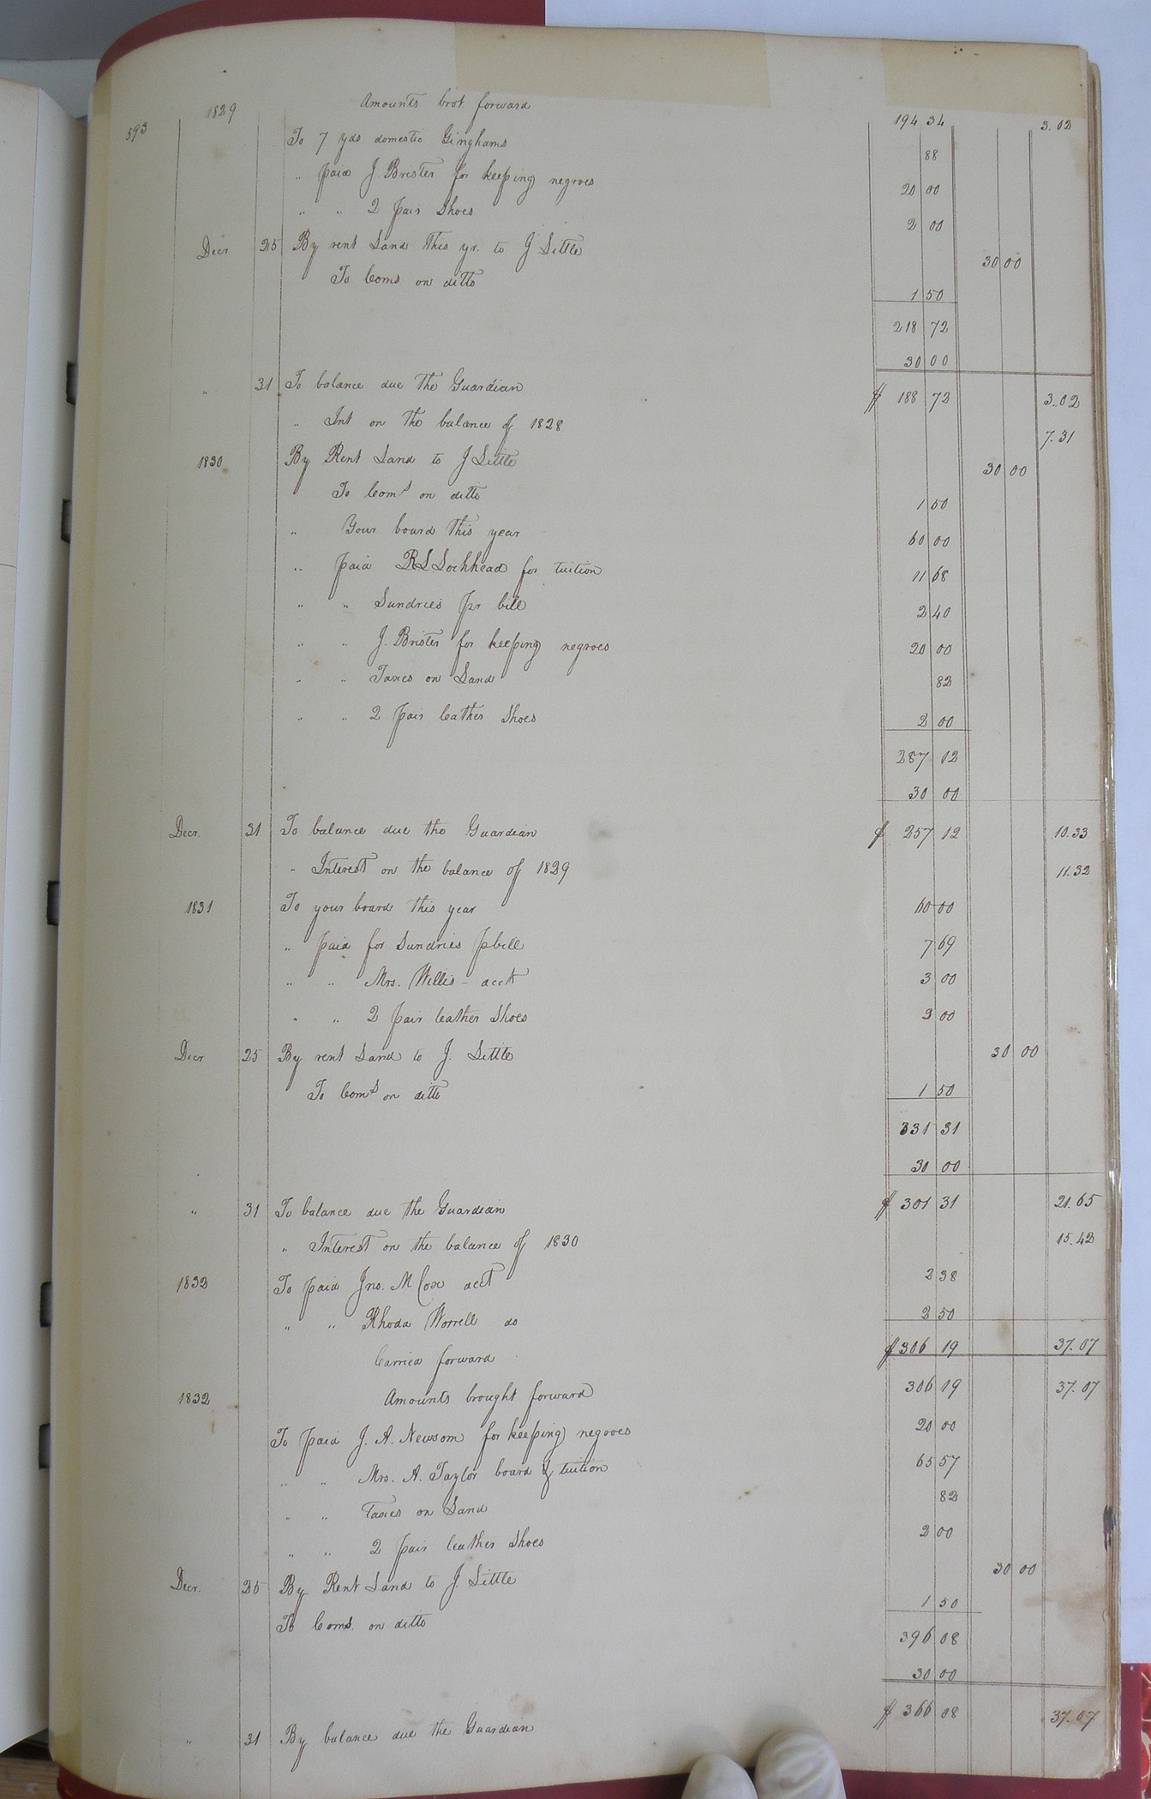 593 1829 Amounts brot. forward 194 34 3.02
To 7 yds domestic Ginghams 88
" paid J. Brister for keeping negroes 20 00
" " 2 pair Shoes 2 00
Decr 25 By rent Land this yr. to J Little 30 00
To Coms on ditto 1 50
218 72
30 00
" 31 To balance due the Guardian $ 188 72 3.02
" Int on the balance of 1828 7.31
1830 By Rent Land to J Little 30 00
To Coms on ditto 1 50
" Your board this year 60 00
" paid R L Lochhead for tuition 11 68
" " Sundries pr bill 2 40
" " J. Brister for keeping negroes 20 00
" " Taxes on Land 82
" " 2 pair leather Shoes 2 00
287 12
30 00
Decr. 31 To balance due the Guardian $ 257 12 10.33
" Interest on the balance of 1829 11.32
1831 To your board this year 60 00
" paid for Sundries p bill 7 69
" " Mrs. Willis - acct 3 00
" " 2 pair leather Shoes 2 00
Decr 25 By rent Land to J. Little 30 00
To Coms on ditto 1 50
331 31
30 00
" 31 To balance due the Guardian $ 301 31 21.65
" Interest on the balance of 1830 15.42
1832 To paid Jno. M Cox acct 2 38
" " Rhoda Worrell do 2 50
Carried forward $ 306 19 37.07
1832 Amounts brought forward 306 19 37.07
To paid J. A. Newsom for keeping negroes 20 00
" " Mrs. A. Taylor board & tuition 65 57
" " Taxes on Land 82
" " 2 pair leather Shoes 2 00
Decr. 25 By Rent Land to J. Little 30 00
To Coms. on ditto 1 50
396 08
30 00
" 31 By balance due the Guardian $ 366 08 37.07